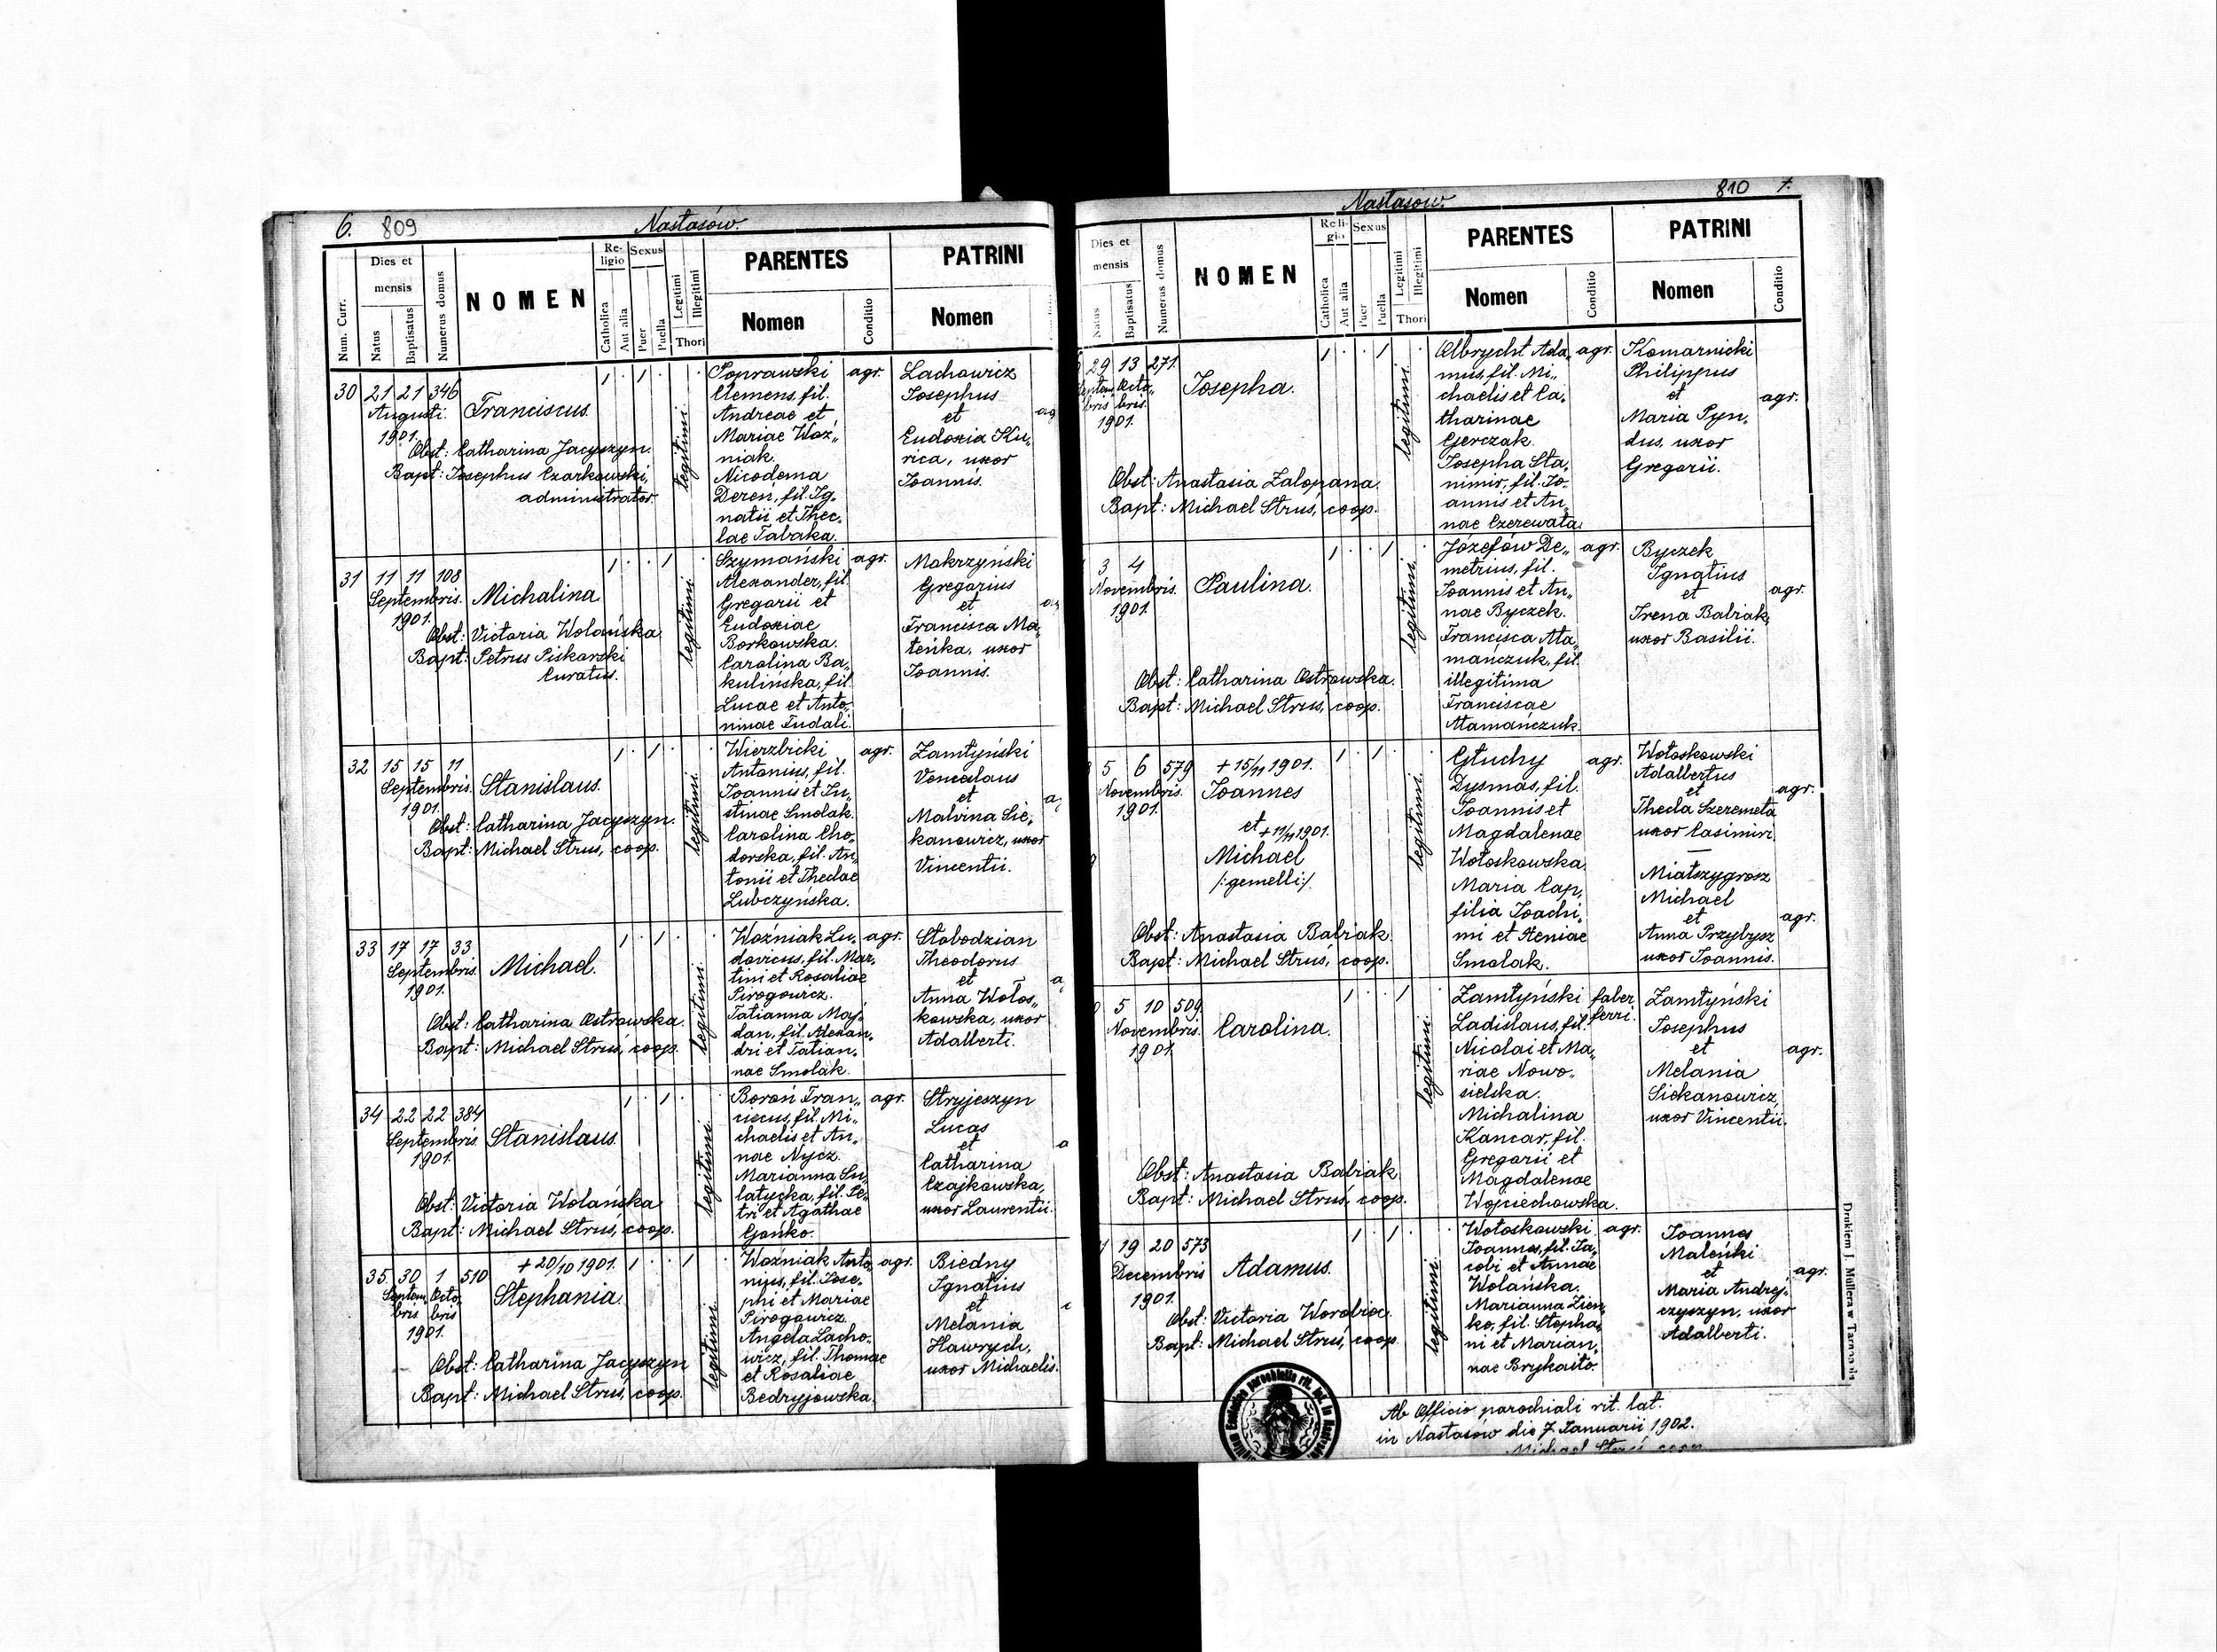 6. 809
Nastasów.
Num. Curr.
Dies et mensis
Natus
Baptisatus
Numerus domus
NOMEN
Religio
Catholica
Aut alia
Sexus
Puer
Puella
Legitimi
Illegitimi
Thori
PARENTES
Nomen
Conditio
PATRINI
Nomen
30 21 21 346
Augusti
1901.
Franciscus.
Obst: Catharina Jacyszyn.
Bapt: Josephus Czarkowski,
administrator.
legitimi
Poprawski
Clemens, fil.
Andreae et
Mariae Woź„
niak.
Nicodema
Dereń, fil. Ig„
natii et Thec„
lae Tabaka.
agr.
Lachowicz
Josephus
et
Eudoxia Ku„
rica, uxor
Joannis.
ag
31 11 11 108
Septembris.
1901.
Michalina
Obst: Victoria Wolańska
Bapt: Petrus Piskorski
Curatus.
legitimi
Szymański
Alexander, fil.
Gregorii et
Eudoxiae
Borkowska.
Carolina Ba„
kulińska, fil.
Lucae et Anto„
ninae Fudali.
agr.
Mokrzyński
Gregorius
et
Francisca Ma„
teńka, uxor
Joannis.
32 15 15 11
Septembris.
1901.
Stanislaus.
Obst: Catharina Jacyszyn.
Bapt: Michael Struś, coop.
legitimi
Wierzbicki
Antonius, fil.
Joannis et Ju„
stinae Smolak.
Carolina Cho„
dorska, fil. An„
tonii et Theclae
Lubczyńska.
agr.
Zamłyński
Venceslaus
et
Malvina Sie„
kanowicz, uxor
Vincentii.
33 17 17 33
Septembris.
1901.
Michael.
Obst: Catharina Ostrowska.
Bapt: Michael Struś, coop.
legitimi
Woźniak Lu„
dovicus, fil. Mar„
tini et Rosaliae
Pirogowicz.
Tatianna Maj„
dan, fil. Alexan„
dri et Tatian„
nae Smolak.
agr.
Słobodzian
Theodorus
et
Anna Wołos„
kowska, uxor
Adalberti.
34 22 22 384
Septembris
1901.
Stanislaus.
Obst: Victoria Wolańska
Bapt: Michael Struś, coop.
legitimi
Boroń Fran„
ciscus, fil. Mi„
chaelis et An„
nae Nycz.
Marianna Su„
latycka, fil. Pe„
tri et Agathae
Gońko.
agr.
Stryjeszyn
Lucas
et
Catharina
Czajkowska,
uxor Laurentii.
a
35. 30 1 510
Septem„ Octo„
bris bris
1901.
+ 20/10 1901.
Stephania.
Obst: Catharina Jacyszyn
Bapt: Michael Struś, coop.
legitimi
Woźniak Anto„
nius, fil. Jose„
phi et Mariae
Pirogowicz.
Angela Lacho„
wicz, fil. Thomae
et Rosaliae
Bedryjowska.
agr.
Biedny
Ignatius
et
Melania
Hawrych,
uxor Michaelis.
Nastasów.
810 7.
Dies et mensis
Natus
Baptisatus
Numerus domus
NOMEN
Religio
Catholica
Aut alia
Sexus
Puer
Puella
Legitimi
Illegitimi
Thori
PARENTES
Nomen
Conditio
PATRINI
Nomen
Conditio
29 13 271.
Septem„ Octo„
bris bris.
1901.
Josepha.
Obst: Anastasia Zalopana.
Bapt: Michael Struś, coop.
legitimi
Olbrycht Ada„
mus, fil. Mi„
chaelis et Ca„
tharinae
Gerczak.
Josepha Sta„
nimir, fil. Jo„
annis et An„
nae Czerewata.
agr.
Komarnicki
Philippus
et
Maria Pyn„
dus, uxor
Gregorii.
agr.
3 4
Novembris.
1901.
Paulina.
Obst: Catharina Ostrowska.
Bapt: Michael Struś, coop.
legitimi
Józefów De„
metrius, fil.
Joannis et An„
nae Byczek.
Francisca Ata„
mańczuk, fil.
illegitima
Franciscae
Atamańczuk.
agr.
Byczek
Ignatius
et
Irena Babiak,
uxor Basilii.
agr.
5 6 579
Novembris.
1901.
+ 15/11 1901.
Joannes
et + 11/11 1901.
Michael
/:gemelli:/
Obst: Anastasia Babiak.
Bapt: Michael Struś, coop.
legitimi
Głuchy
Dysmas, fil.
Joannis et
Magdalenae
Wołoskowska.
Maria Cap,
filia Joachi„
mi et Xeniae
Smolak.
agr.
Wołoskowski
Adalbertus
et
Thecla Szeremeta
uxor Casimiri.
agr.
Miałszygrosz
Michael
et
Anna Przybysz
uxor Joannis.
agr.
5 10 509.
Novembris.
1901.
Carolina.
Obst: Anastasia Babiak
Bapt: Michael Struś, coop.
legitimi
Zamłyński
Ladislaus, fil.
Nicolai et Ma„
riae Nowo„
sielska.
Michalina
Kancar, fil.
Gregorii et
Magdalenae
Wojciechowska.
faber
ferri.
Zamłyński
Josephus
et
Melania
Siekanowicz,
uxor Vincentii.
agr.
19 20 573
Decembris
1901.
Adamus.
Obst: Victoria Worobiec.
Bapt: Michael Struś, coop.
legitimi
Wołoskowski
Joannes, fil. Ja„
cobi et Annae
Wolańska.
Marianna Zien„
ko, fil. Stepha„
ni et Marian„
nae Bryhaito.
agr.
Joannes
Maleńki
et
Maria Andrej„
czyszyn, uxor
Adalberti.
agr.
Ab Officio parochiali rit. lat.
in Nastasów die 7 Januarii 1902.
Michael Struś coop.
Drukiem J. Müllera w